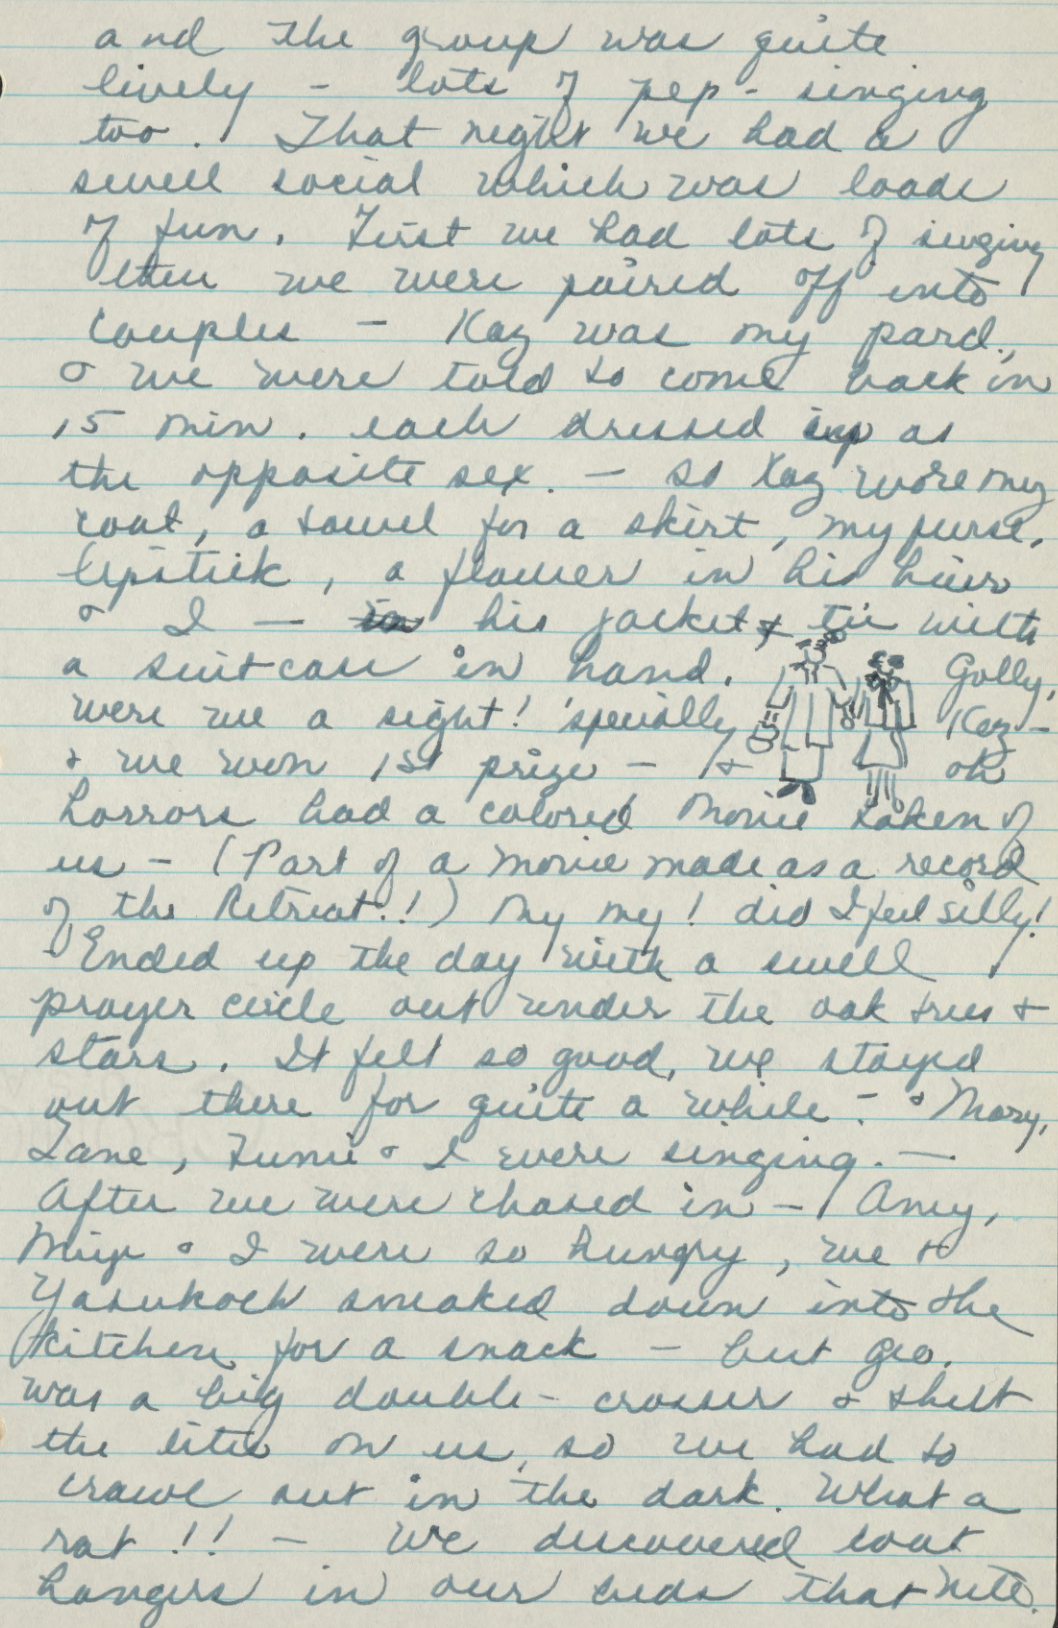 and the group was quite
lively - lots of pep - singing
too. That night we had a
swell social which was loads
of fun. First we had lots of singing
then we were paired off into
couples - Kaz was my pard.,
& we were told to come back in
15 min. each dressed up as
the opposite sex. - So Kaz wore my
coat, a towel for a skirt, my purse,
lipstick, a flower in his hair
& I - in his jacket & tie with
a suitcase in hand. Golly,
were we a sight! 'specially Kaz -
& we won 1st prize - & oh
horrors had a colored movie taken of
us - (Part of a movie made as a record
of the Retreat.!) My my! did I feel silly!
Ended up the day with a swell
prayer circle out under the oak trees &
stars. It felt so good, we stayed
out there for quite a while - & Mary,
Jane, Fumi & I were singing. -
After we were chased in - Amy,
Miyo & I were so hungry, we &
Yasukoch sneaked down into the
kitchen for a snack - but Geo.
was a big double-crosser & shut
the lite on us, so we had to
crawl out in the dark. What a
rat!! - We discovered coat
hangers in our beds that nite.